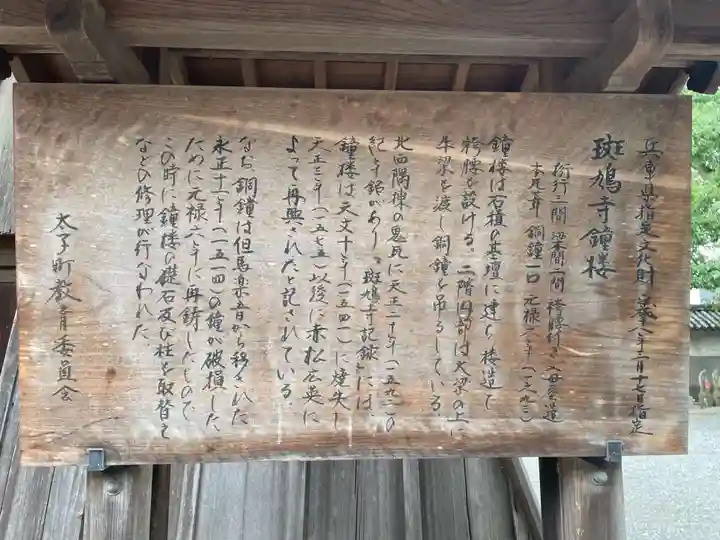 兵庫県指定文化財 昭和六年三月十七日指定
斑鳩寺鐘楼
桁行三間 梁間二間 袴腰付き 入母屋造
本瓦葺 銅鐘一口 元禄六年(一六九三)
鐘楼は石積の基壇に建ち楼造で
袴腰を設ける。二階内部は大梁の上に
牛梁を渡し銅鐘を吊るしている。
北西隅棟の鬼瓦に天正二十年(一五九二)の
紀年銘があり、「斑鳩寺記録」には、
鐘楼は天文十年(一五四一)に焼失し
天正三年(一五七五)以後に赤松広英に
よって再興されたと記されている。
なお銅鐘は但馬楽音から移された
永正十一年(一五一四)の鐘が破損した
ために元禄六年に再鋳したもので
この時に鐘楼の礎石及び柱を取替る
などの修理が行なわれた。
太子町教育委員会